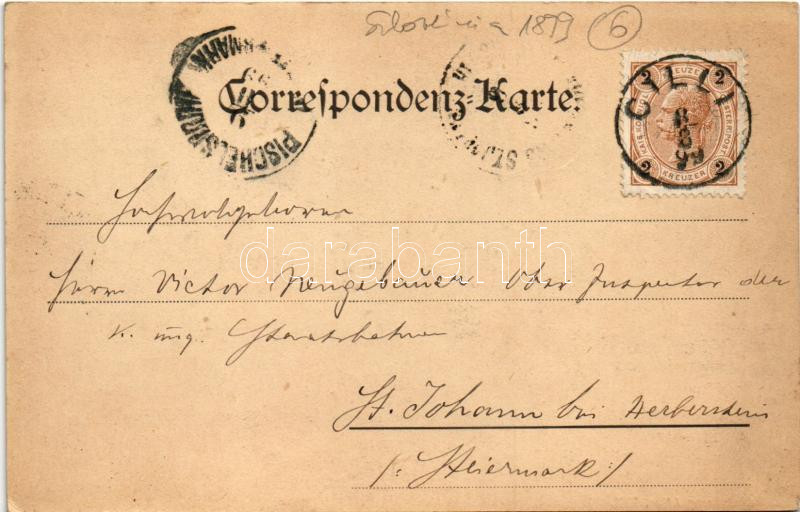 1899 6
Correspondenz-Karte.
PISCHELSDORF
CILLI
2 KREUZER 2
2 KREUZER 2
darabanth
Hochwolgeboren
Herrn Victor Neugebauer Ober Inspector der
k. ung. Staatsbahnen
St. Johann bei Herberstein
/: Steiermark :/